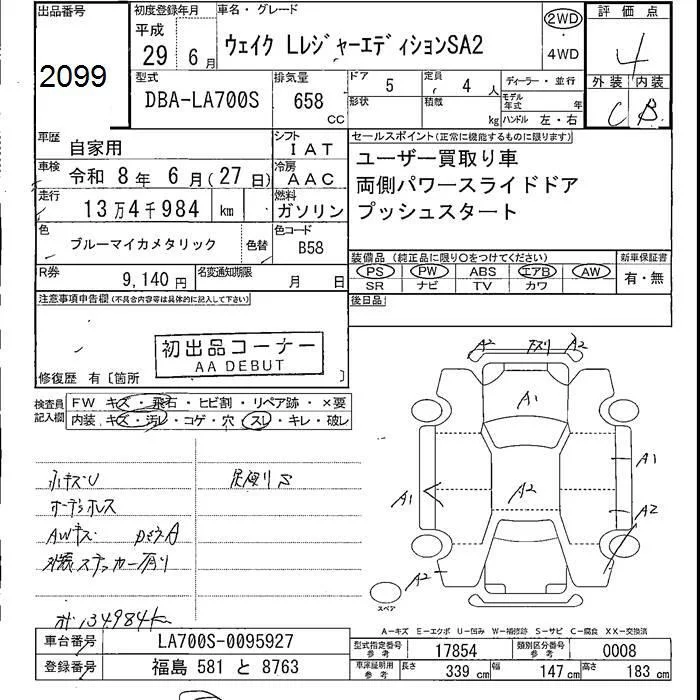 出品番号
2099
初度登録年月
平成
29 6 月
車名・グレード
ウェイク LレジャーエディションSA2
2WD
・
4WD
評価点
4
外装 内装
C B
型式
DBA-LA700S
排気量
658
CC
ドア
5
定員
4 人
形状
積載
kg
ディーラー・並行
モデル
年式 年
ハンドル 左・右
車歴
自家用
シフト
IAT
車検
令和 8 年 6 月(27 日)
冷房
AAC
走行
13万4千984 km
燃料
ガソリン
色
ブルーマイカメタリック
色替
色コード
B58
R券
9,140 円
名変通知期限
月 日
セールスポイント(正常に機能するものに限ります)
ユーザー買取り車
両側パワースライドドア
プッシュスタート
装備品(純正品に限り○をつけてください)
PS PW ABS エアB AW
SR ナビ TV カワ
新車保証書
有・無
後日品
注意事項申告欄(不具合内容等は具体的に記入して下さい)
初出品コーナー
AA DEBUT
修復歴 有〔箇所 〕
検査員
記入欄
FW キズ・飛石・ヒビ割・リペア跡・×要
内装 キズ・汚レ・コゲ・穴・スレ・キレ・破レ
小キズU
足廻りS
オーディオレス
AWキズ
外装ステッカー有り
134984k
A2
下ズリ
A2
A1
A1
A1
A2
A2
A2
スペア
A-キズ E-エクボ U-凹み W-補修跡 S-サビ C-腐食 XX-交換済
車台番号
LA700S-0095927
登録番号
福島 581 と 8763
型式指定番号
参考
17854
類別区分番号
参考
0008
車庫証明用
参考
長さ 339 cm 幅 147 cm 高さ 183 cm